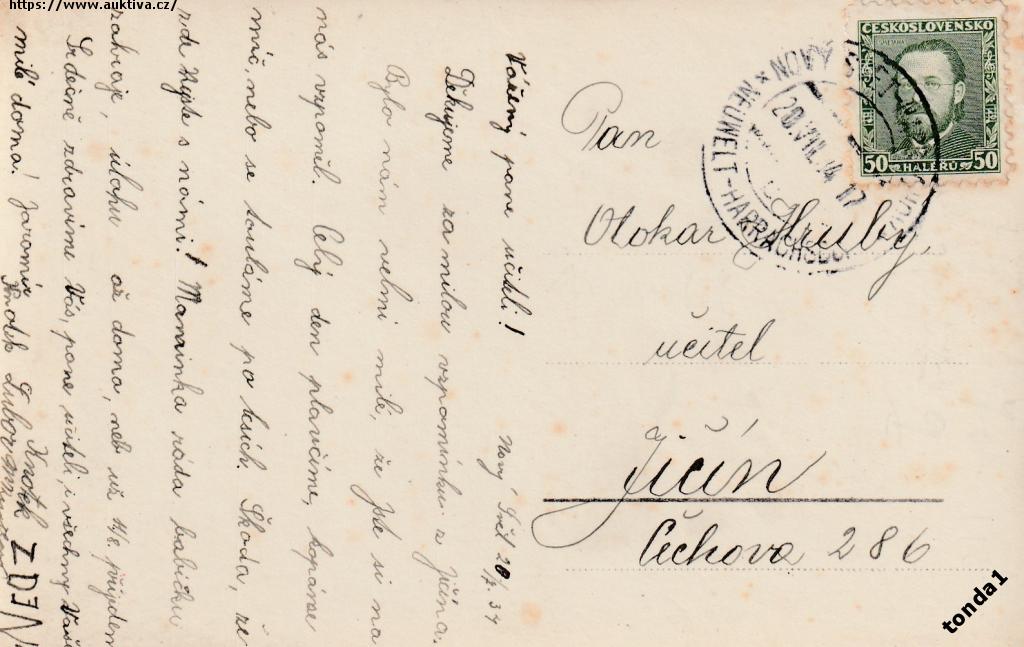 https://www.auktiva.cz/
Nový Svět 20/7. 34
Vážený pane učiteli!
Děkujeme za milou vzpomínku z Jičína.
Bylo nám velmi milé, že jste si na
nás vzpomněl. Celý den plavčíme, kopáme
míč, nebo se touláme po lesích. Škoda, že
zde nejste s námi! Maminka ráda babičku
zahraje, úlohu až doma, neb už 11/8. přijedem
Srdečně zdravíme Vás, pane učiteli, i všechny Vaše
milé doma! Jaromír
Knotek Lubor
Knotek ZDEN
Pan
Otokar Hrubý
učitel
Jičín
Čechova 286
ČESKOSLOVENSKO
SMETANA
50 HALÉŘŮ 50
NOVÝ SVĚT-HARRACHOV
NEUWELT-HARRACHSDORF
20.VII.34 17
tonda1